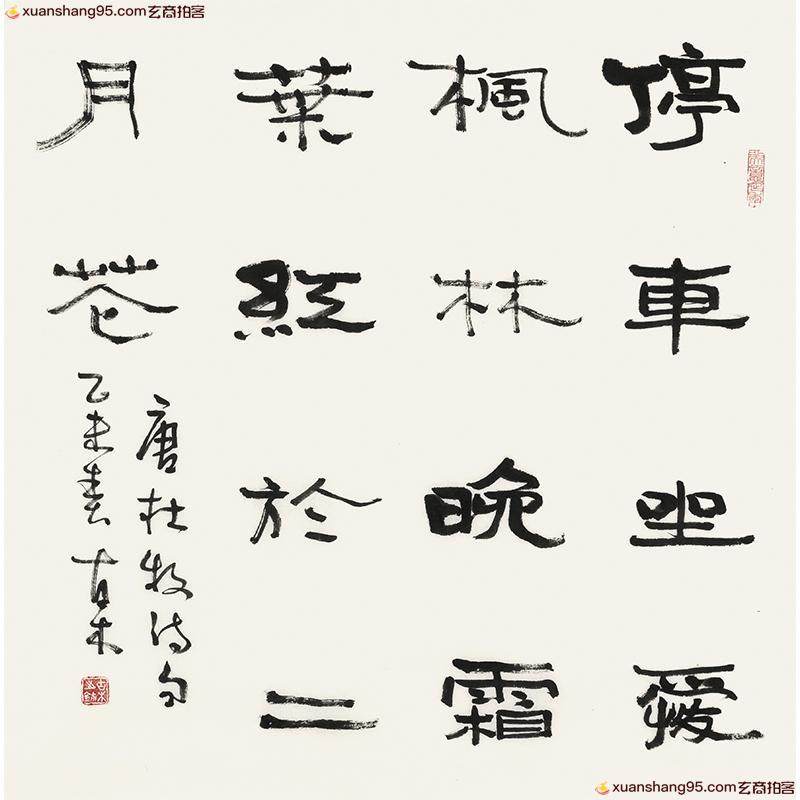 xuanshang95.com玄商拍客
停車坐愛
楓林晚霜
葉紅於二
月花
唐杜牧詩句
乙未春 古木
xuanshang95.com玄商拍客